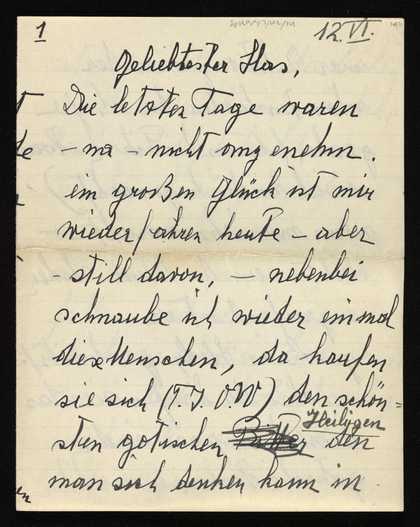 1
12.VI.
Geliebtester Has,
Die letzten Tage waren
– na – nicht angenehm.
ein großen Glück ist mir
wieder/ahren heute – aber
– still davon, – nebenbei
schnaube ich wieder einmal
diese Menschen, da haufen
sie sich (T. I. O. W) den schön=
sten gotischen Heiligen den
man sich denken kann in